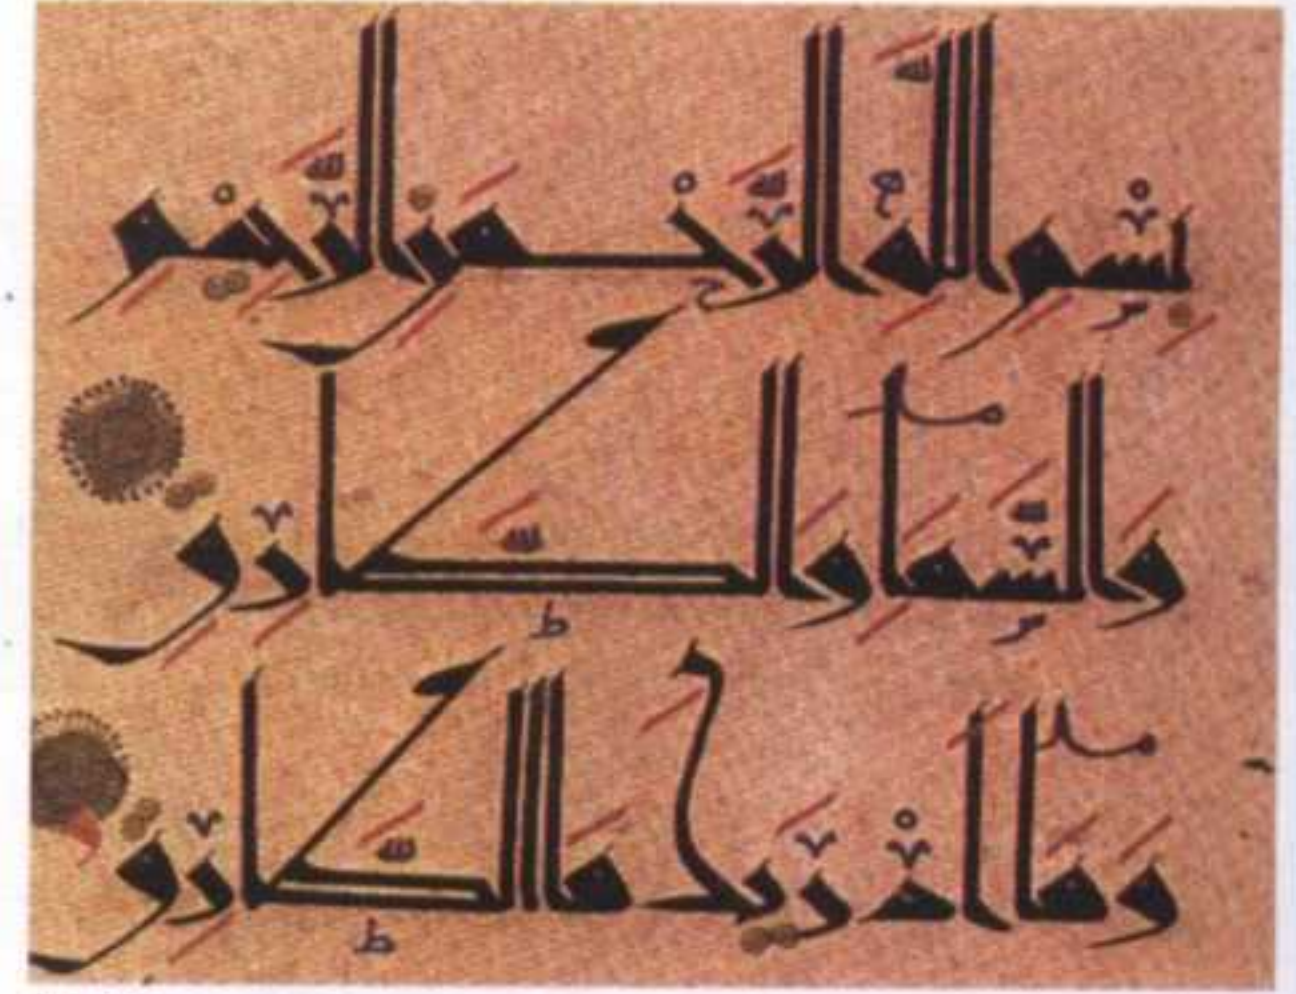 بِسْمِ اللَّهِ الرَّحْمَنِ الرَّحِيمِ
وَالسَّمَاءِ وَالطَّارِقِ
وَمَا أَدْرَيكَ مَا الطَّارِقُ